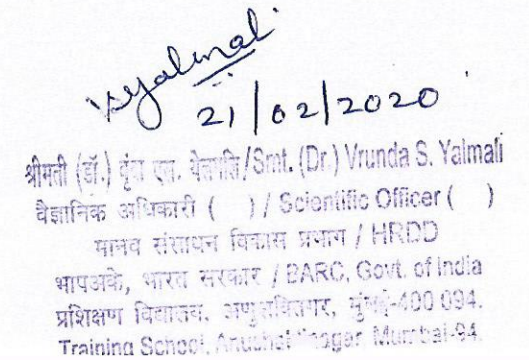 Vsyalmali
21/02/2020
श्रीमती (डॉ.) वृंदा एस. येलमलि/Smt. (Dr.) Vrunda S. Yalmali
वैज्ञानिक अधिकारी ( ) / Scientific Officer ( )
मानव संसाधन विकास प्रभाग / HRDD
भापअकें, भारत सरकार / BARC, Govt. of India
प्रशिक्षण विद्यालय, अणुशक्तिनगर, मुंबई-400 094.
Training School, Anushaktinagar, Mumbai-94.